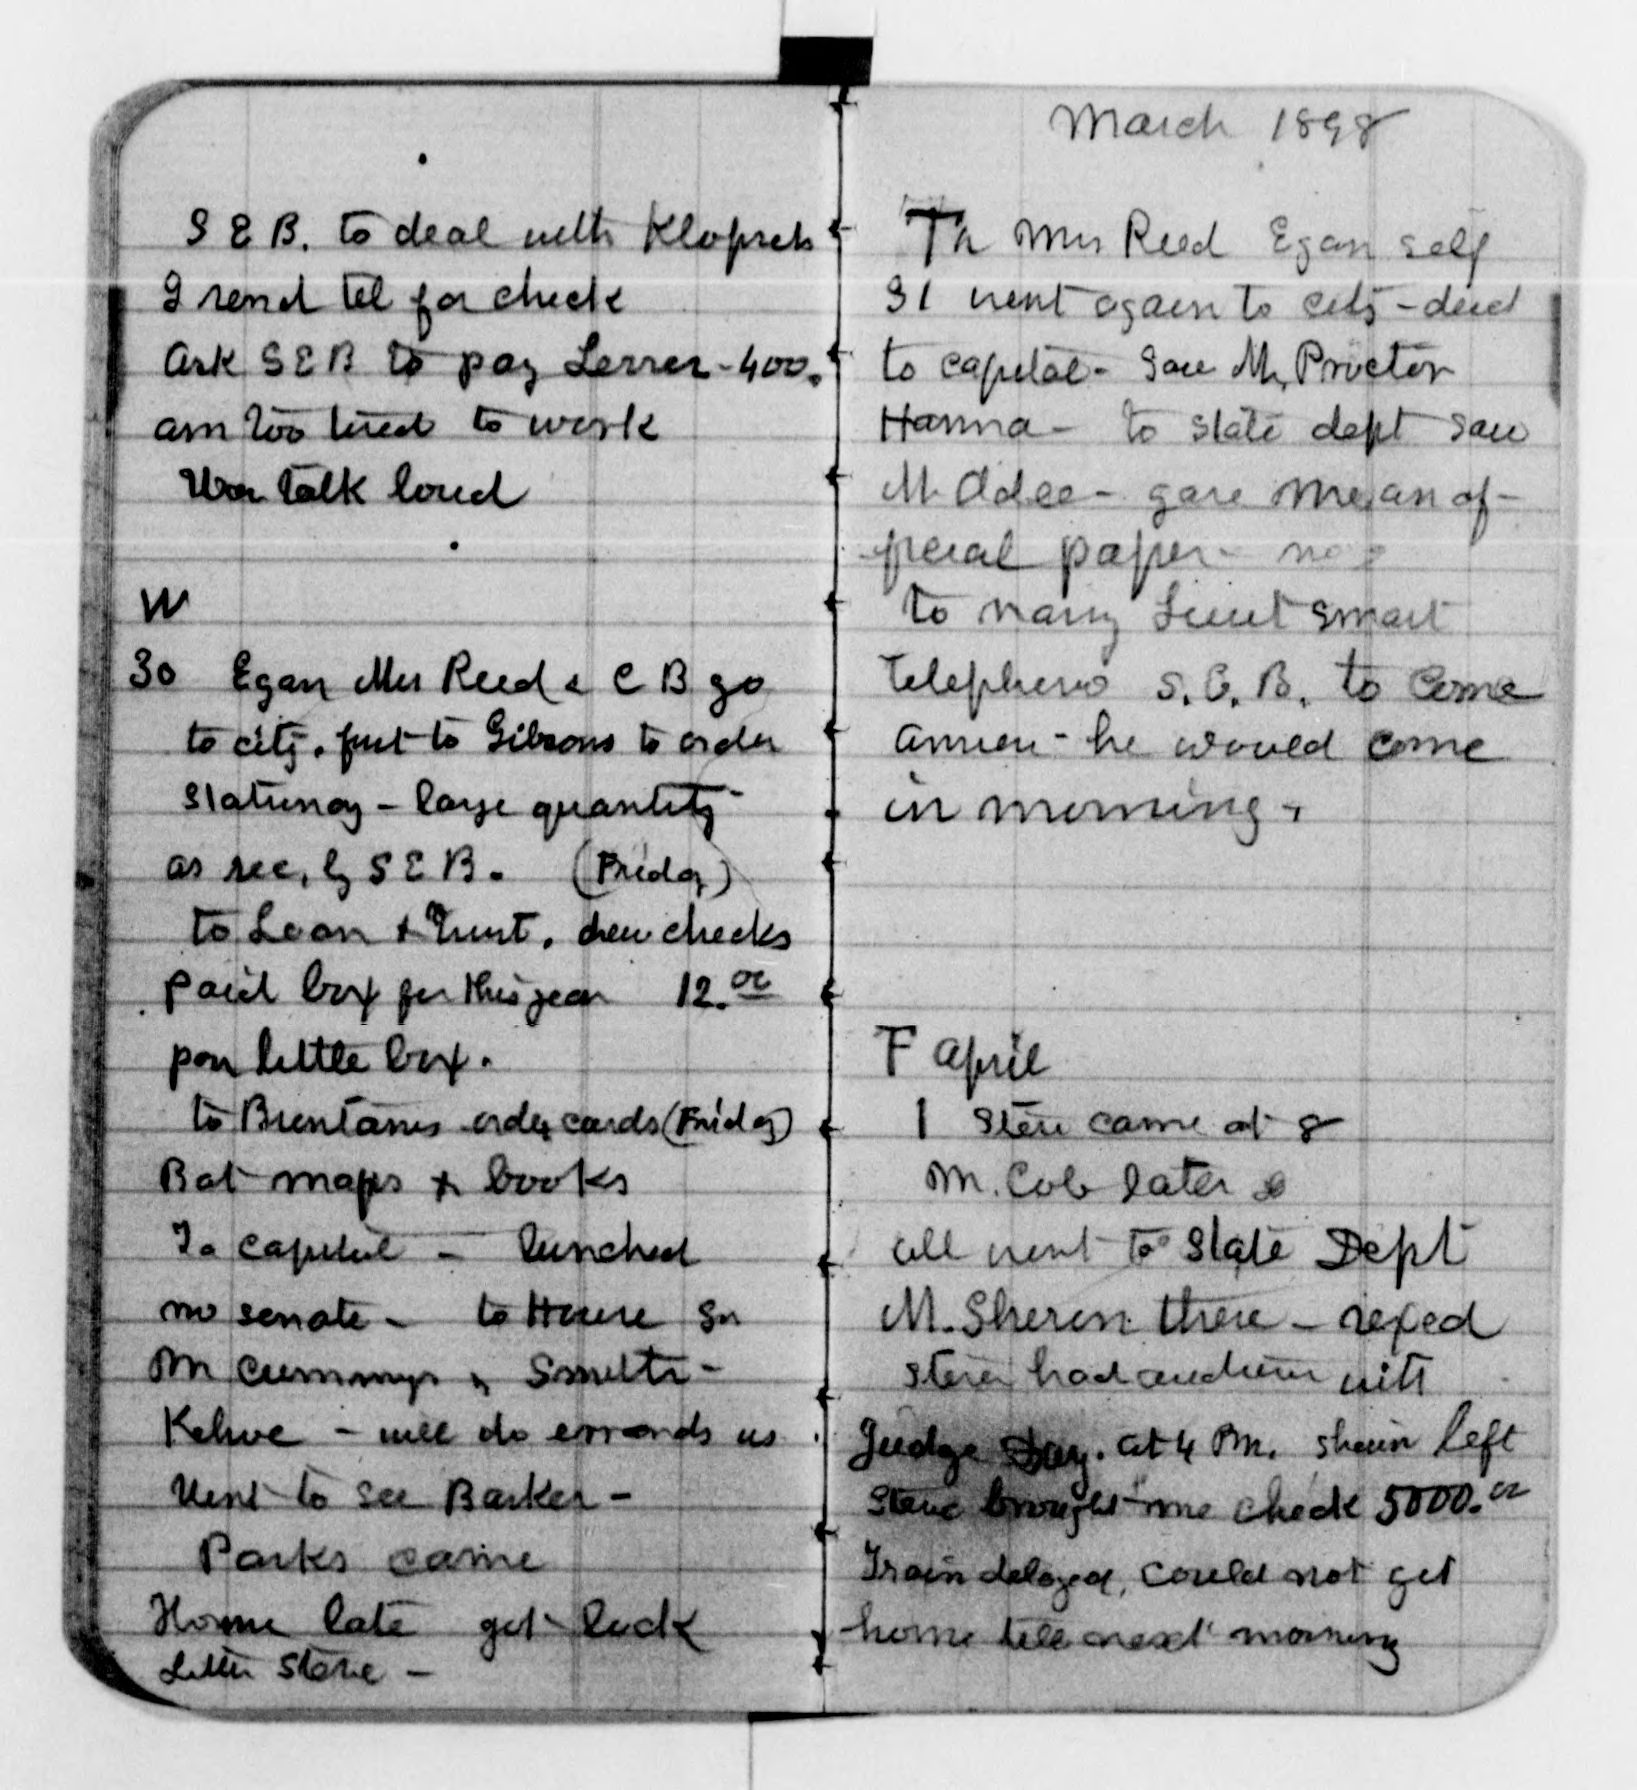 S E B. to deal with Klopsch
I send tel for check
Ask S E B to pay Lesser - 400.
am too tired to work
War talk loud
W
30 Egan Mrs Reed & C B go
to city. first to Gibsons to order
Stationoy - large quantity
as rec, by S E B. (Friday)
to Loan & Trust. drew checks
paid box for this year 12.00
little box.
to Brentanos order cards (Friday)
Bot maps & books
To capitol - lunched
no senate - to House
Mr Cummings
- will do errands us
Went to see Barker -
Parks came
Home late got
Letter Steve -
March 1898
Th Mrs Reed Egan self
31 went again to city - died
to capitol - saw Mr. Proctor
Hanna - to state dept saw
Mr Adee - gave me an of-
ficial paper -
to navy Lieut Smart
Telephono S. E. B. to come
- he would come
in morning.
F April
1 Steve came at 8
M. Cob later
all went to State Dept
M. there -
Steve had audien with
Judge Day. at 4 Pm. left
Steve brought me check 5000.00
Train delayed, could not get
home till next morning